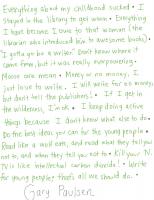 Everything about my childhood sucked. • I
stayed in the library to get warm. • Everything
I have become I owe to that woman (the
librarian who introduced him to awesome books). •
I gotta be a writer! Don't know where it
came from, but it was really overpowering. •
Moose are mean. • Money or no money, I
just love to write. • I will write for no money,
but don't tell the publishers! • If I get in
the wilderness, I'm ok. • I keep doing active
things because I don't know what else to do. •
Do the best ideas you can for the young people. •
Read like a wolf eats, and read what they tell you
not to, and when they tell you not to. • Kill your TV.
TV is like intellectual carbon dioxide! • Write
for young people; that's all we should do. •
Gary Paulsen